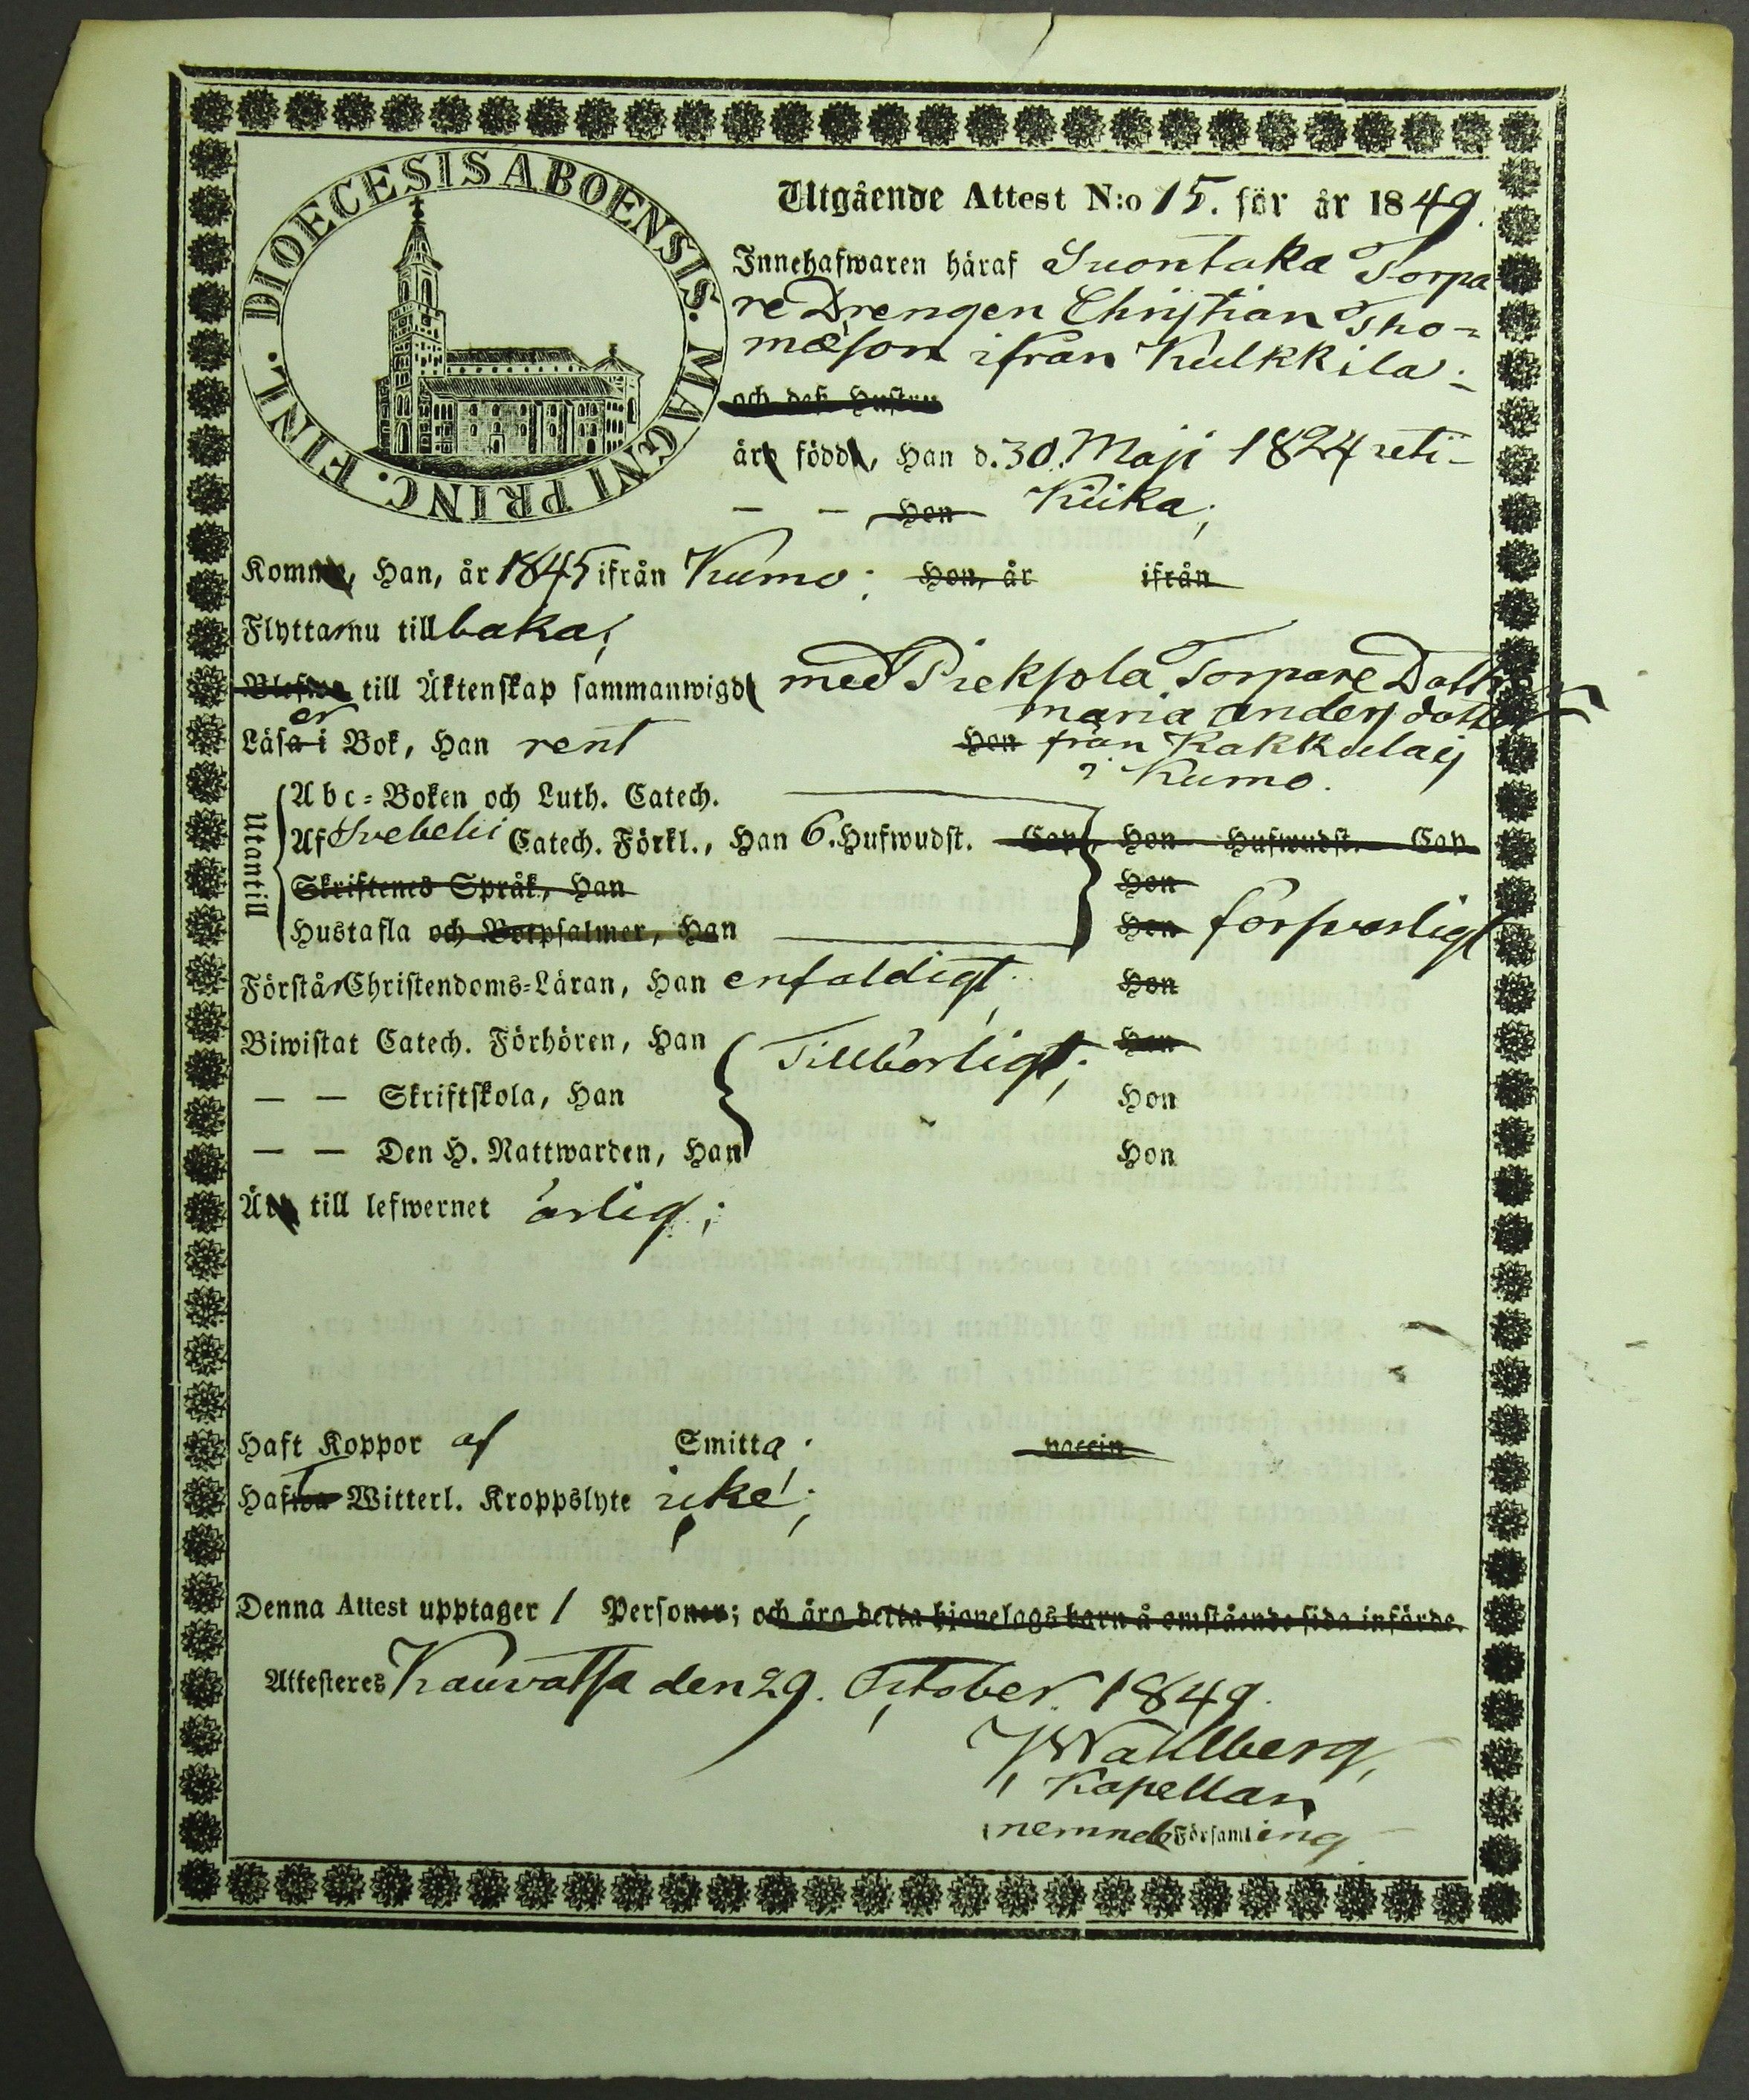 DIOECESIS ABOENSIS. MAGNI PRINC. FINL.
Utgående Attest N:o 15. för år 1849.
Innehafwaren häraf Suontaka Torpa
re Drengen Christian Tho-
mæson ifrån Kulkkila;
och deß Hustru
äro födde, Han d. 30. Maji 1824 uti
— — Hon Kiika;
Kommo, Han, år 1845 ifrån Kumo; Hon, år ifrån
Flyttar nu tillbaka;
Blefwo till Äktenskap sammanwigd med Piekpola Torpare Dottren
Maria Anders dotter
Läser i Bok, Han rent Hon från Kakkulais
i Kumo.
Utantill
Abc-Boken och Luth. Catech.
Af Svebelii Catech. Förkl., Han 6. Hufwudst. Cap. Hon Hufwudst. Cap.
Skriftenes Språk, Han Hon
Hustafla och Botpsalmer, Han Hon försvarligt
Förstår Christendoms-Läran, Han enfaldigt; Hon
Biwistat Catech. Förhören, Han Tillbörligt; Hon
— — Skriftskola, Han Hon
— — Den H. Nattwarden, Han Hon
Är till lefwernet ärlig;
Haft Koppor af Smitta; vaccin
Haft Witterl. Kroppslyte icke;
Denna Attest upptager 1 Personer; och äro detta hjonelags barn å omstående sida införde.
Attesteres Kauvatsa den 29. October 1849.
J Wahlberg,
Kapellan
i nemnde Församling